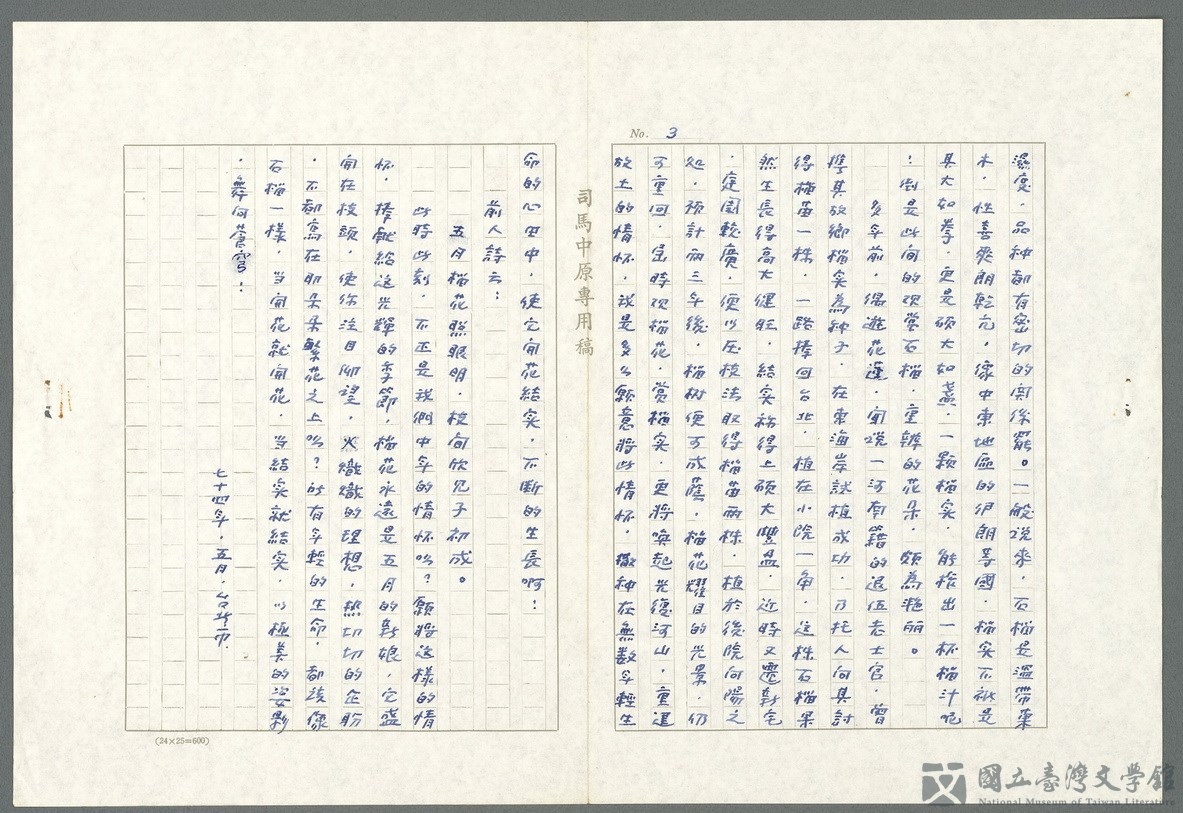 No. 3
濕度，品種都有密切的關係罷。一般說來，石榴是溫帶菓
木，性喜爽朗乾亢，像中東地區的伊朗等國，榴实不祇是
其大如拳，更是碩大如盞，一顆榴実，能榨出一杯榴汁呢
！倒是此间的观赏石榴，重辦的花朵，頗為艷丽。
多年前，偶遊花蓮，闻说一河南籍的退伍老士官，曾
携其故鄉榴実為种子，在東海岸試植成功，乃托人向其討
得榴苗一株，一路捧回台北，植在小院一角，这株石榴果
然生長得高大健旺，結实称得上碩大豐盈，近時又遷新宅
，庭園較廣，便以压枝法取得榴苗兩株，植於後院向陽之
处，预計兩三年後，榴树便可成蔭，榴花耀目的光景，仍
可重回，屆時观榴花，赏榴实，更将喚起光復河山，重運
故土的情怀，我是多么願意将此情怀，撒种在無数年輕生
司馬中原專用稿
命的心田中，使它開花結实，不断的生長啊！
前人詩云：
五月榴花照眼明，枝间欣见子初成。
此時此刻，不正是我們中年的情怀吗？願将这樣的情
怀，捧献给这光輝的季節，榴花永遠是五月的新娘，它盛
開在枝頭，使你注目仰望，火熾熾的理想，热切切的企盼
，不都寫在那朵朵繁花之上吗？所有年輕的生命，都该像
石榴一樣，当開花就開花，当結实就結实，以極美的姿影
，舞向蒼穹！
七十四年，五月，台北市
(24×25=600)
國立臺灣文學館
National Museum of Taiwan Literature